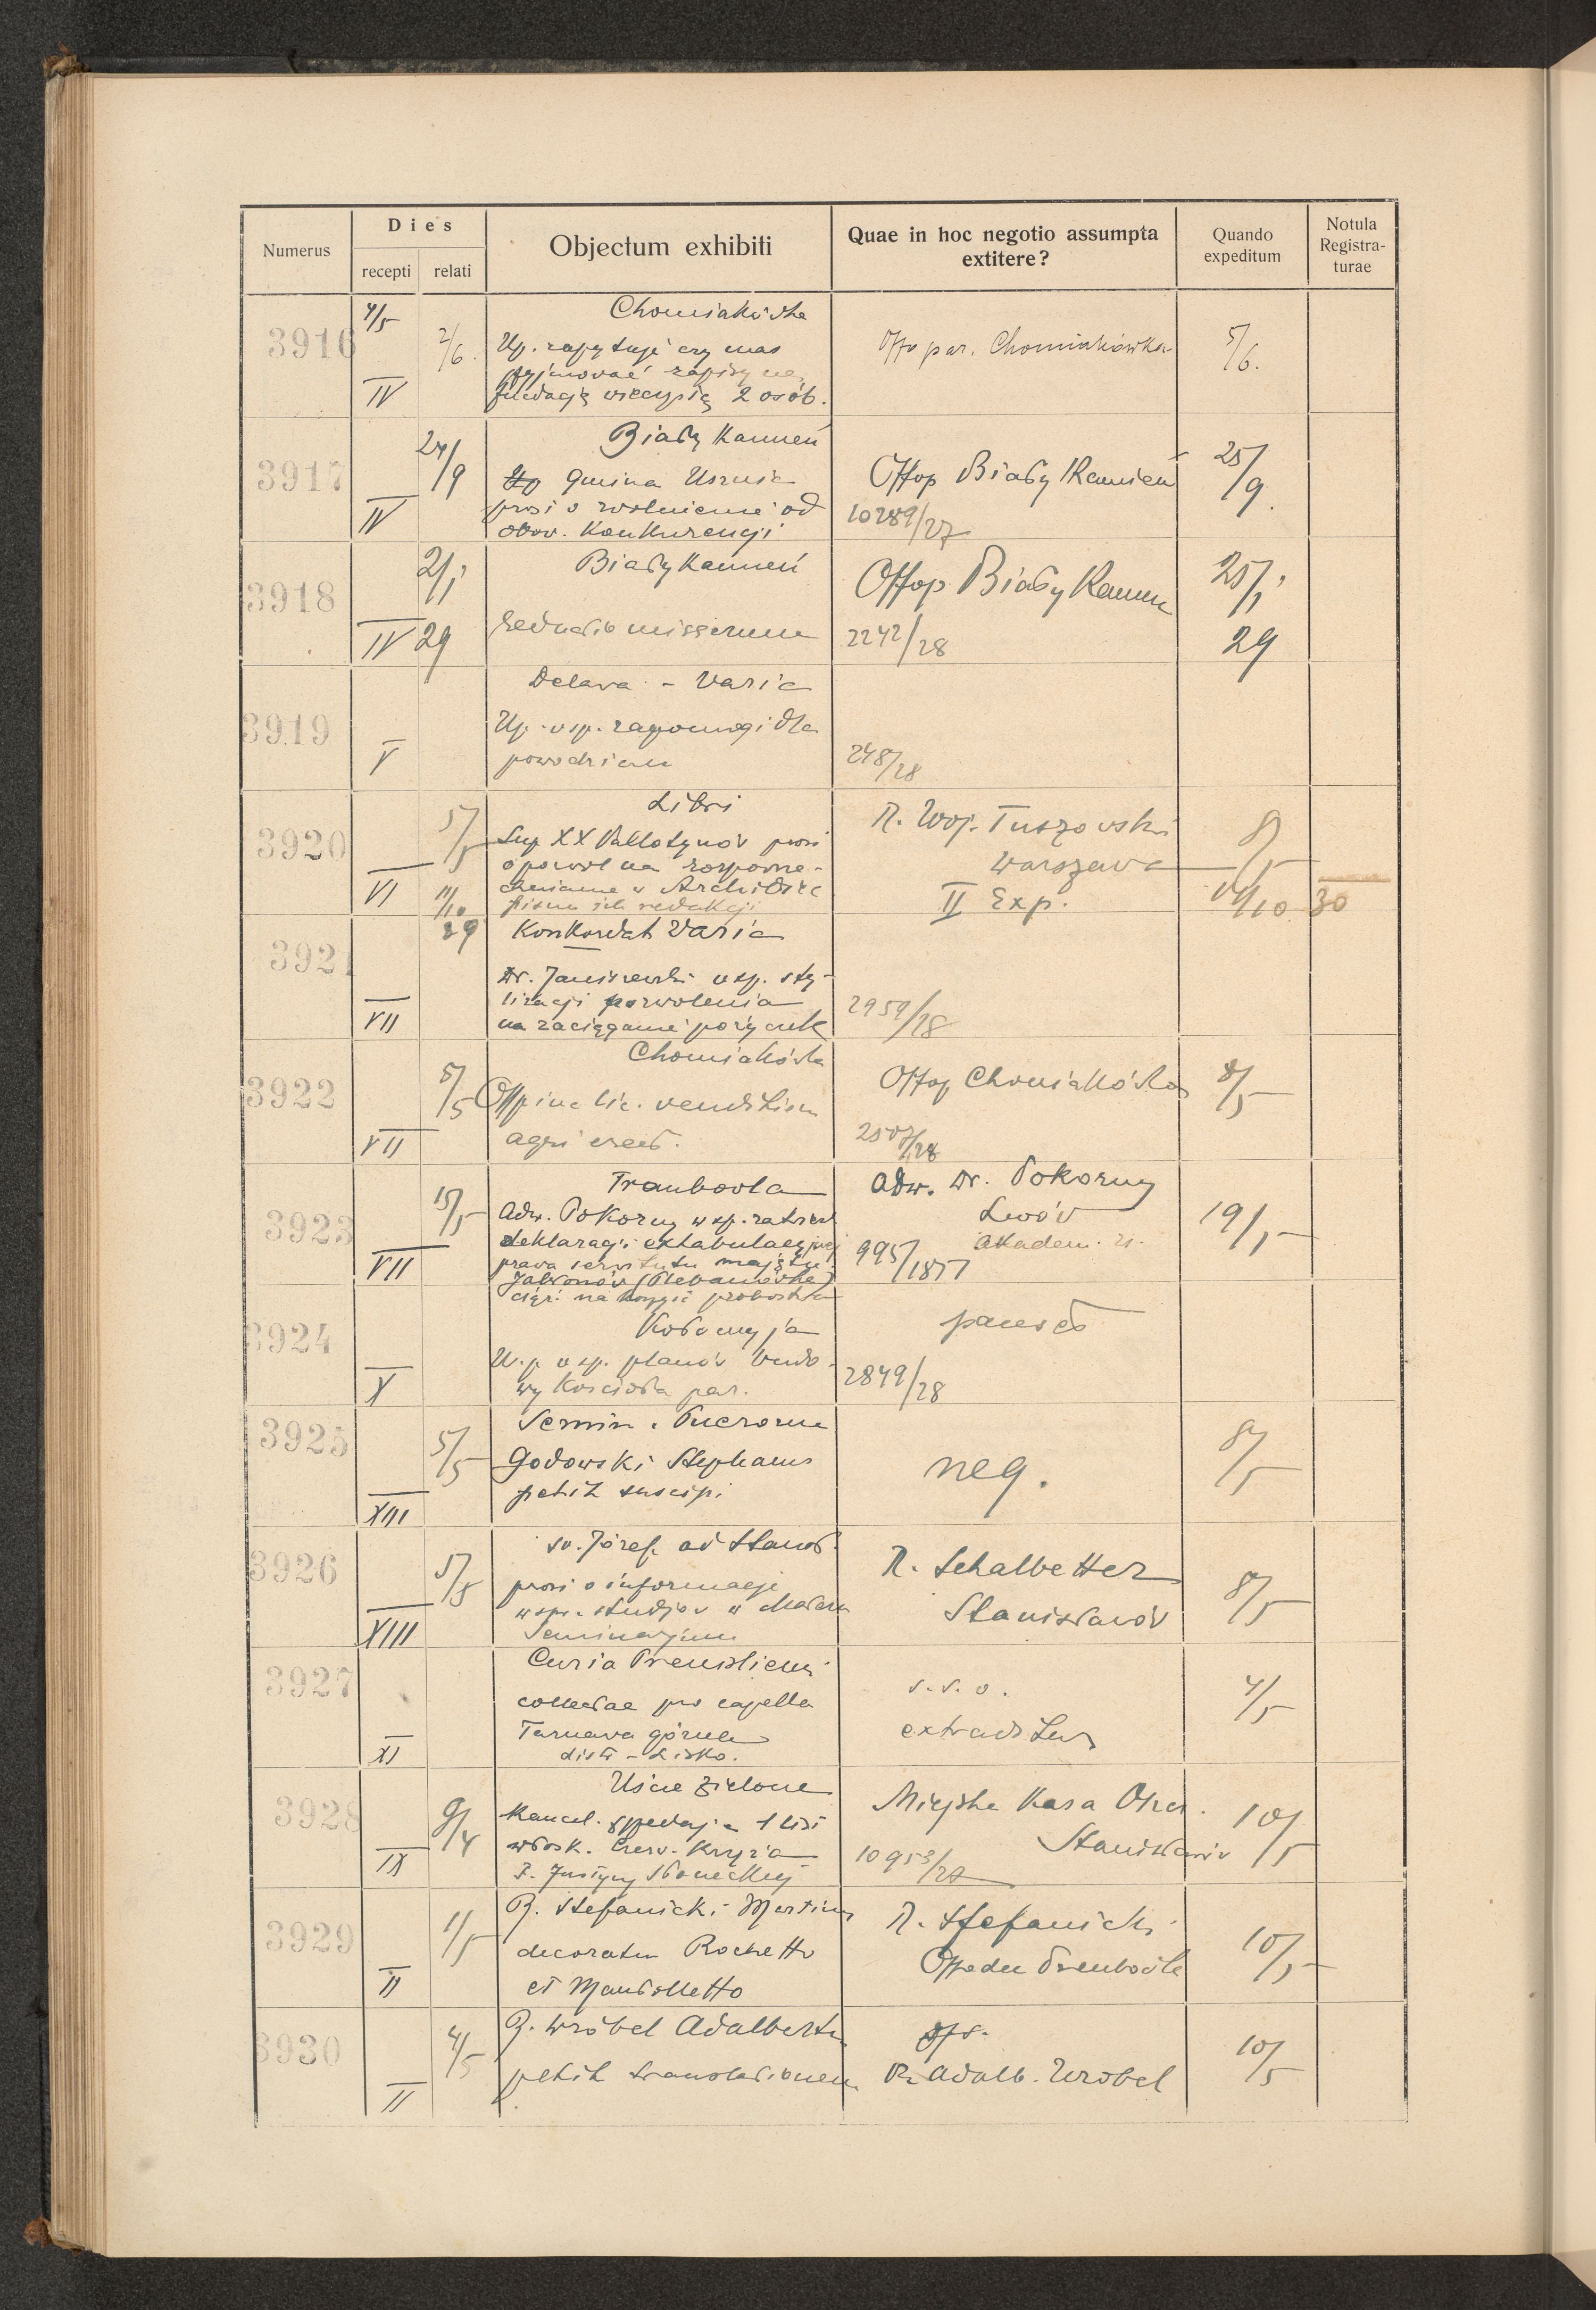 Numerus
Dies
recepti
relati
Objectum exhibiti
Quae in hoc negotio assumpta
extitere?
Quando
expeditum
Notula
Registra-
turae
3916
4/5
2/6.
IV
Chomiakówka
Up. zapytuje czy mas
przyjmować zapisy na
fundację wieczystą 2 osób.
Offo par. Chomiakówka
5/6.
3917
24/9
IV
Biały Kamień
gmina Usznia
prosi o zwolnienie od
obow. Konkurencji
Offop Biały Kamień
10289/27
25/9.
3918
2/1
IV 29
Biały Kamień
reductio missarum
Offop Biały Kamień
2242/28
25/1
29
3919
V
Delawa - Varia
Up. wsp. zapomogi dla
powodzian
248/28
3920
5/5
VI
11/10
29
Libri
Sup XX Pallotynów prosi
o pozwol na rozpowsze-
chnianie w Archidiec
pisma ich redakcji
R. Woj. Turowski
Warszawa
II Exp.
8/5
14/10 30
3921
VII
Konkordat Varia
Dr. Janiszewski wsp. sty-
lizacji pozwolenia
na zaciąganie pożyczek
2959/28
3922
5/5
VII
Chomiakówka
Offi lic. venditionem
agri eccl.
Offop Chomiakówka
2507/28
8/5
3923
15/5
VII
Trembowla
Adw. Pokorny wsp. zatwierd
deklaracji extabulacyjnej
prawa servitutu majątku
Jabłonów (Plebanówka)
ciąż. na korzyść probostwa
Adw. Dr. Pokorny
Lwów
Akadem. 21.
995/1877
19/5
3924
X
Kołomyja
Up. wsp. planów budo-
wy Kościoła par.
2849/28
3925
5/5
XIII
Semin. Puerorum
Godowski Stephanus
petit suscipi
neg.
8/5
3926
5/5
XIII
św. Józef ad Stanisł.
prosi o informacje
wspr. studjów w Małem
Seminarjum
R. Schalbetter
Stanisławów
8/5
3927
XI
Curia Premisliens
collectae pro capella
Tarnawa górna
distr - Lisko.
s. s. o.
extraditus
4/5
3928
9/4
IX
Uście Zielone
Kancel. 1 list
włosk. Czerw. Krzyża
P. Justyny Słoneckiej
Miejska Kasa Oszcz.
Stanisławów
10953/27
10/5
3929
1/5
II
R. Stefanicki Martinus
decoratus Rochetto
et Mantolletto
R. Stefanicki
Offodec Trembowla
10/5
3930
4/5
II
R. Wróbel Adalbertus
petit translationem
R. Adalb. Wróbel
10/5